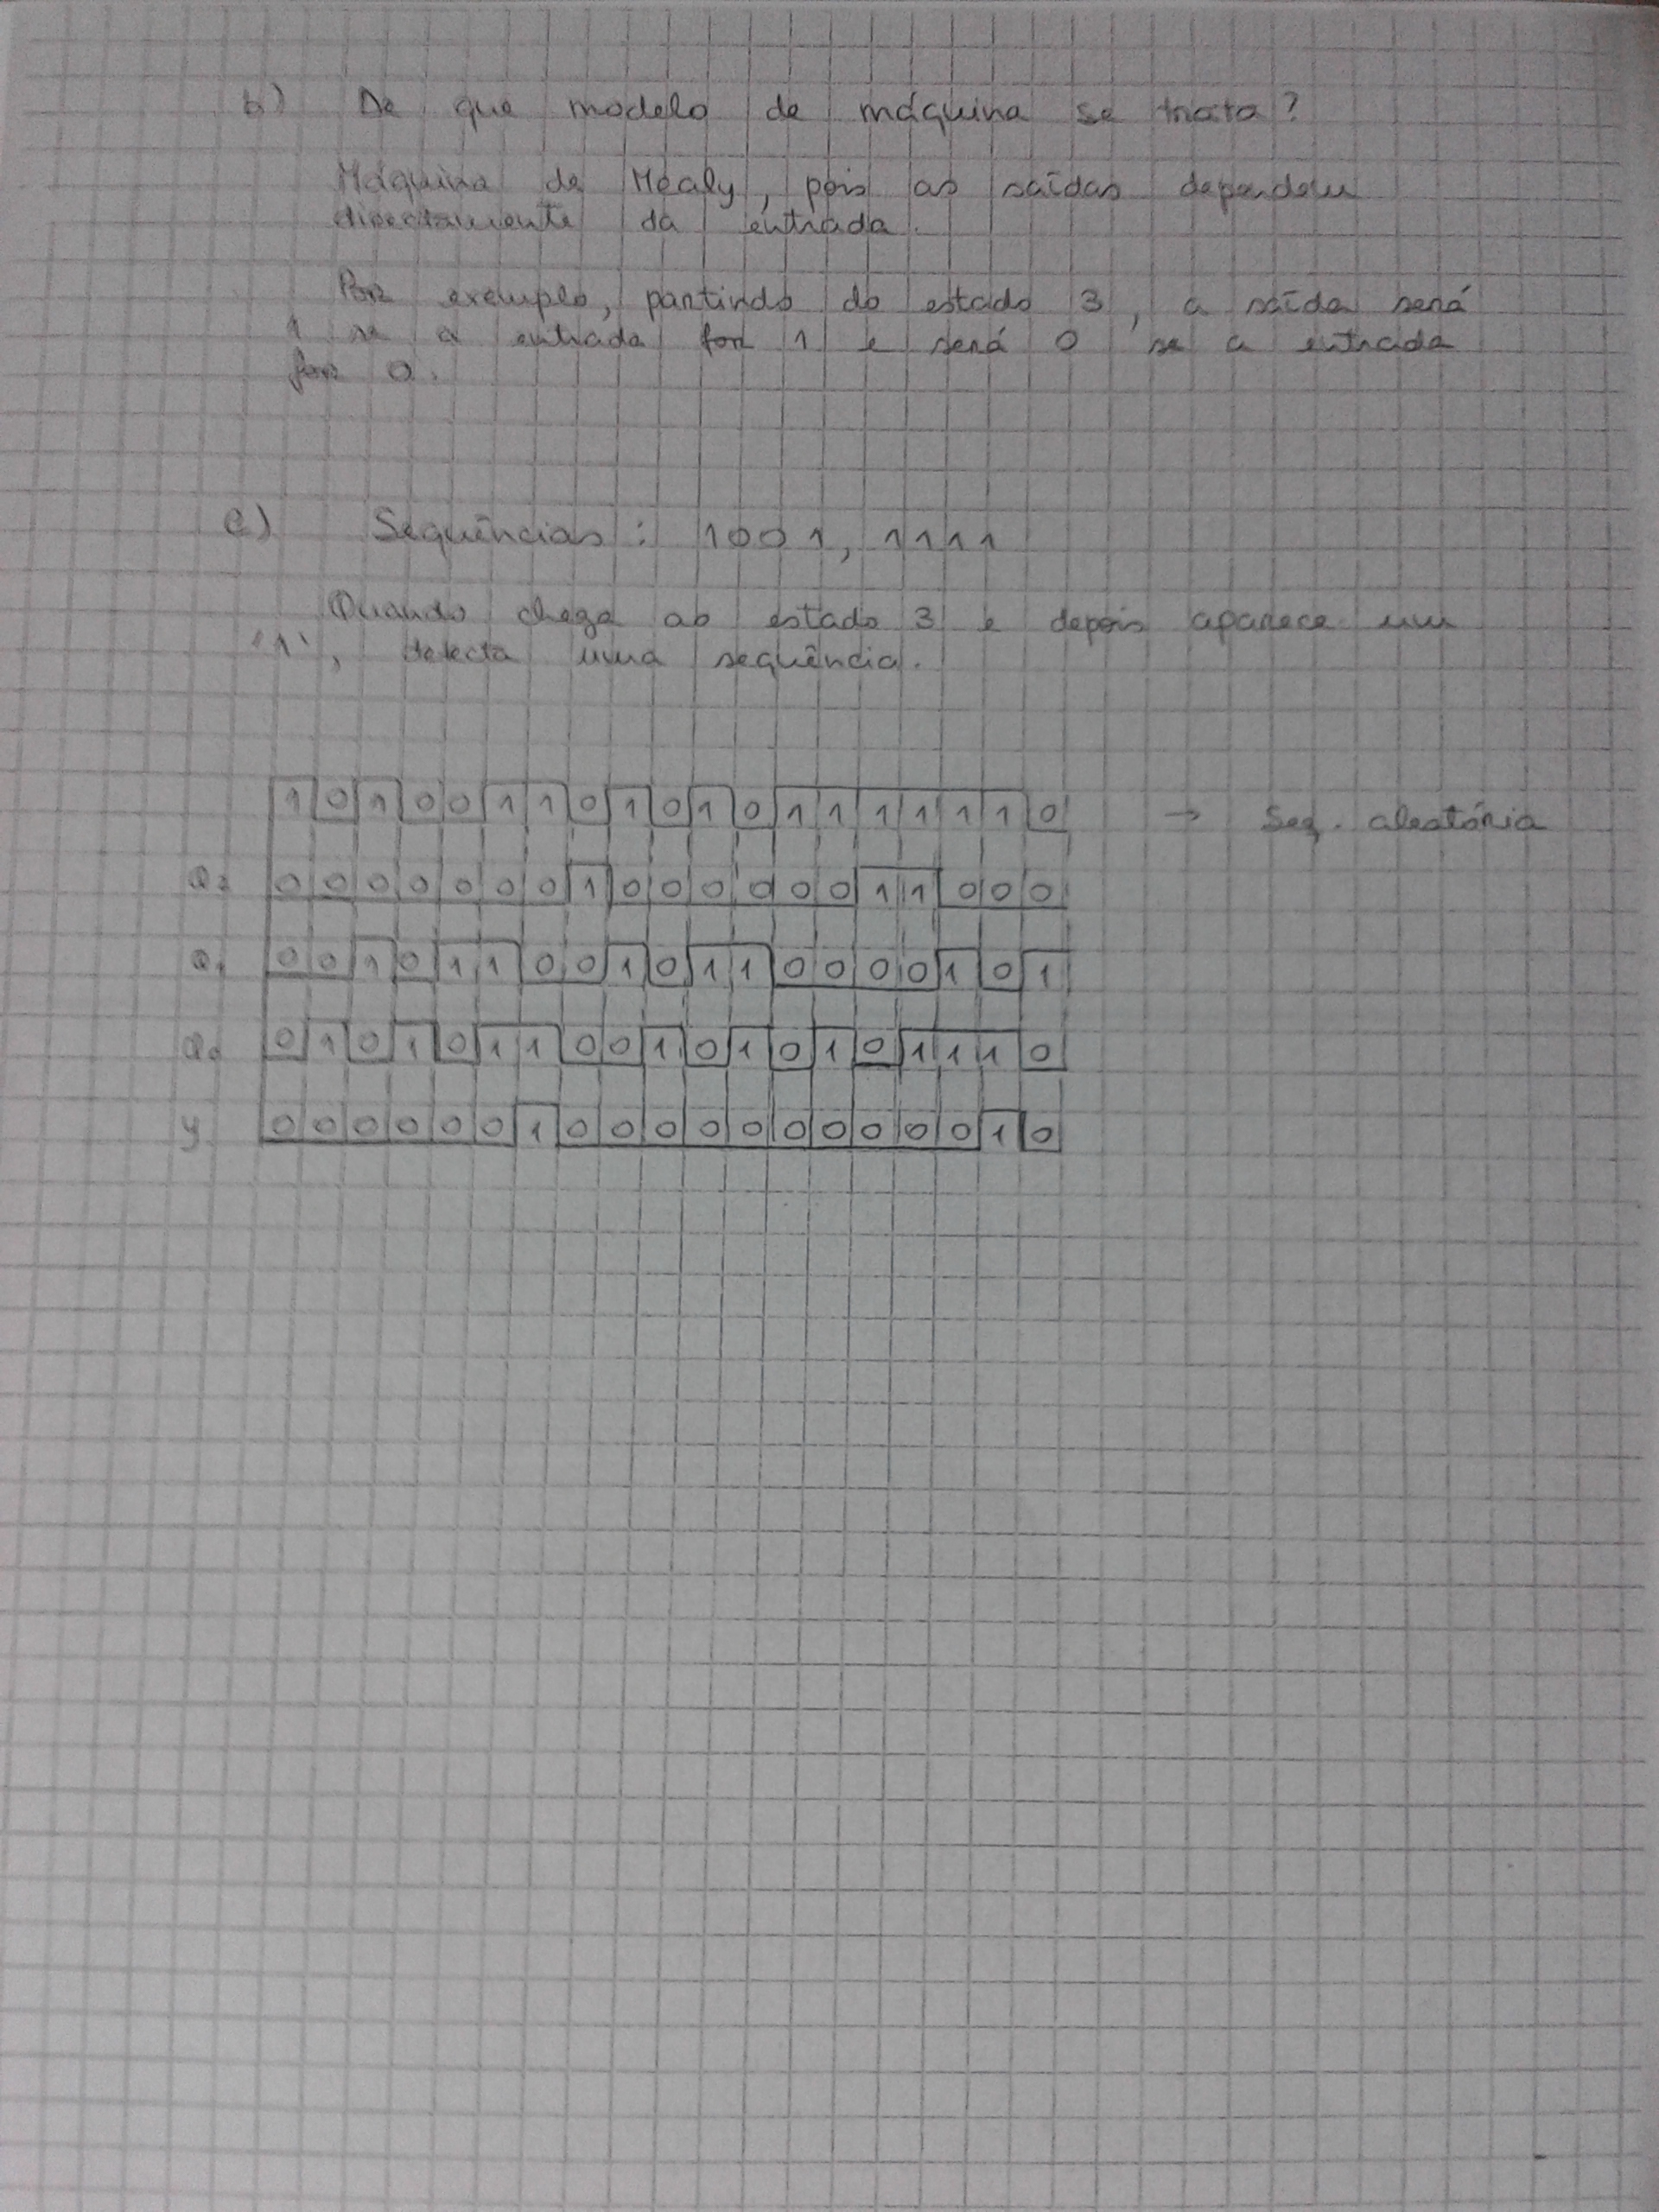 b) De que modelo de máquina se trata?
Máquina de Mealy, pois as saídas dependem
directamente da entrada.
Por exemplo, partindo do estado 3, a saída será
1 se a entrada for 1 e será 0 se a entrada
for 0.
c) Sequências: 1001, 1111
Quando chega ao estado 3 e depois aparece um
'1', detecta uma sequência.
1 0 1 0 0 1 1 0 1 0 1 0 1 1 1 1 1 1 0 → Seq. aleatória
Q2 0 0 0 0 0 0 0 1 0 0 0 0 0 0 1 1 0 0 0
Q1 0 0 1 0 1 1 0 0 1 0 1 1 0 0 0 0 1 0 1
Q0 0 1 0 1 0 1 1 0 0 1 0 1 0 1 0 1 1 1 0
y 0 0 0 0 0 0 1 0 0 0 0 0 0 0 0 0 0 1 0